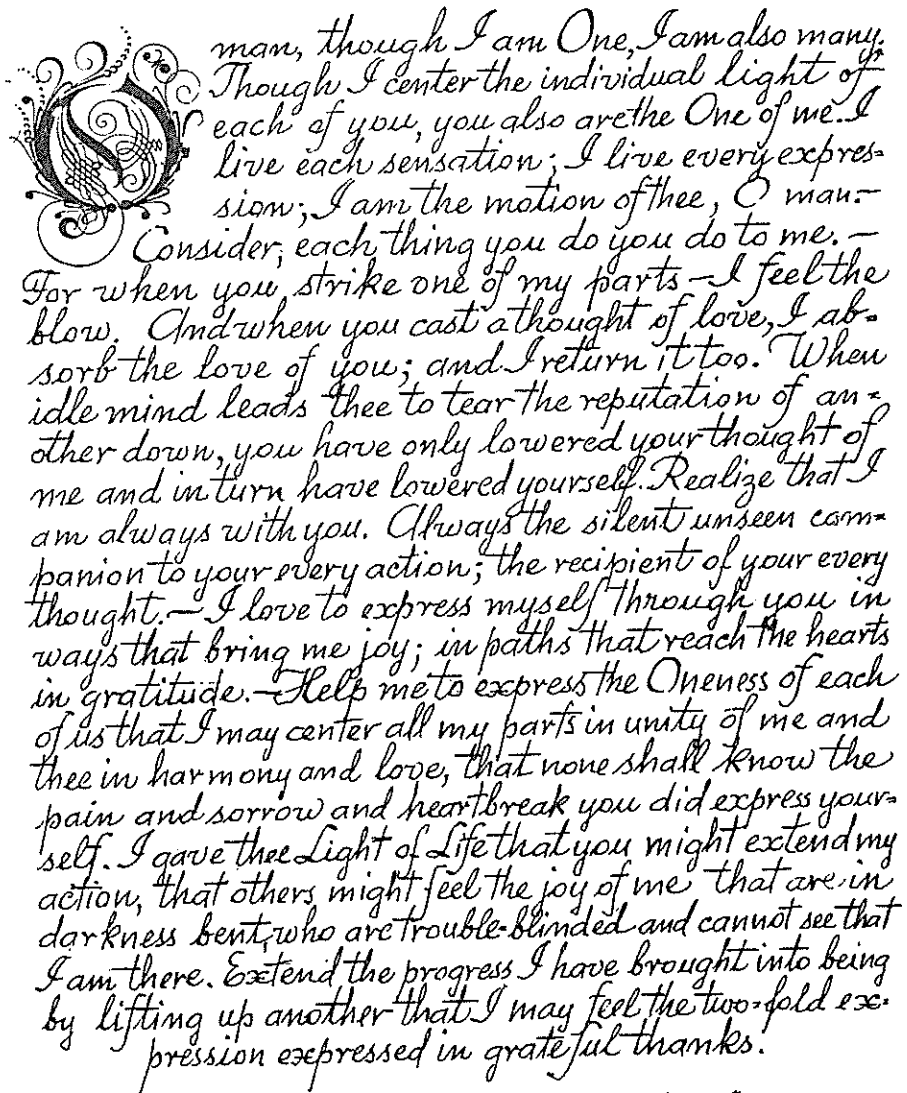 O man, though I am One, I am also many.
Though I center the individual light of
each of you, you also are the One of me. I
live each sensation; I live every expres=
sion; I am the motion of thee, O man.—
Consider, each thing you do you do to me.—
For when you strike one of my parts—I feel the
blow. And when you cast a thought of love, I ab=
sorb the love of you; and I return it too. When
idle mind leads thee to tear the reputation of an=
other down, you have only lowered your thought of
me and in turn have lowered yourself. Realize that I
am always with you. Always the silent unseen com=
panion to your every action; the recipient of your every
thought.—I love to express myself through you in
ways that bring me joy; in paths that reach the hearts
in gratitude.—Help me to express the Oneness of each
of us that I may center all my parts in unity of me and
thee in harmony and love, that none shall know the
pain and sorrow and heartbreak you did express your=
self. I gave thee Light of Life that you might extend my
action, that others might feel the joy of me that are in
darkness bent, who are trouble-blinded and cannot see that
I am there. Extend the progress I have brought into being
by lifting up another that I may feel the two-fold ex=
pression expressed in grateful thanks.